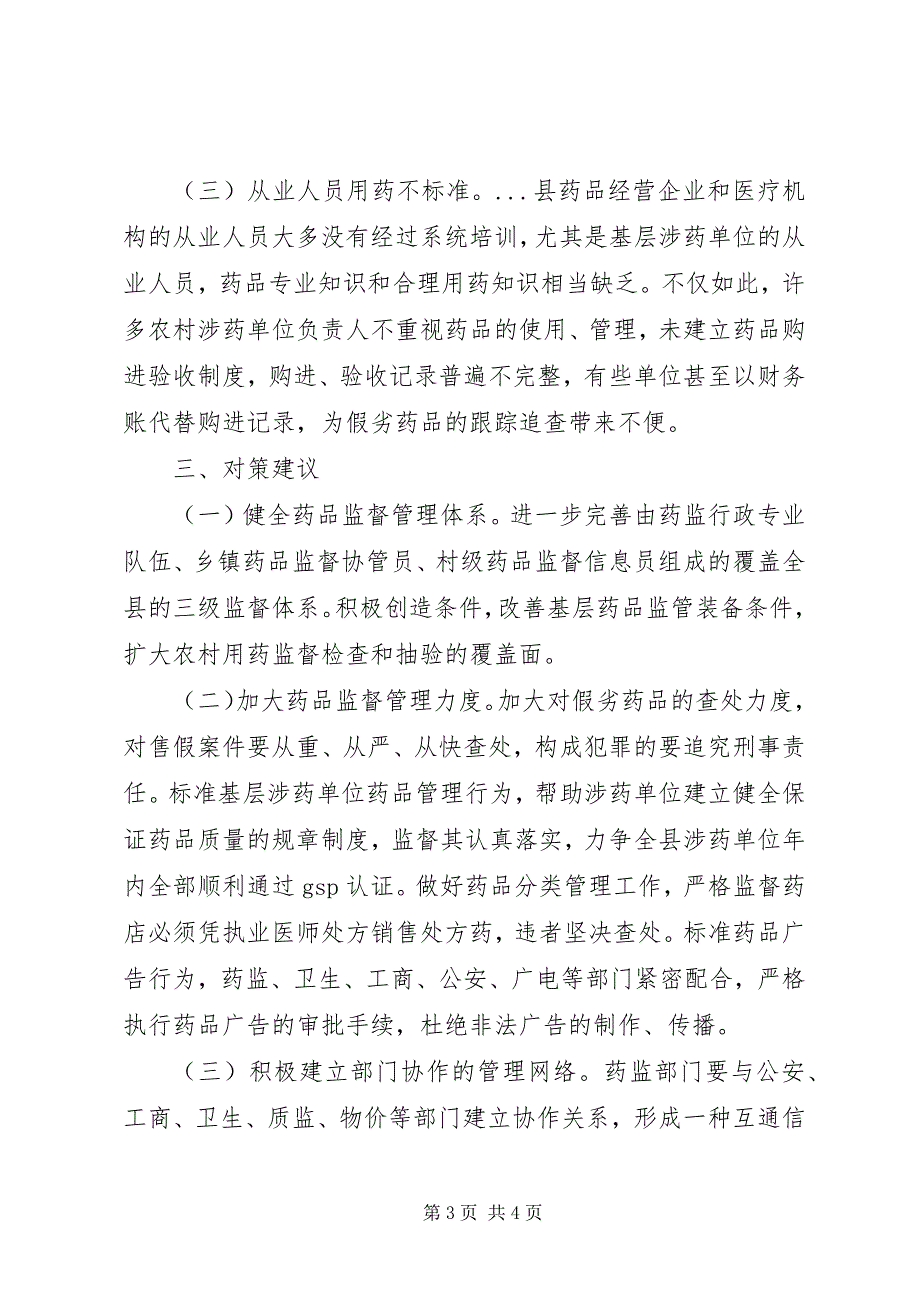 （三）从业人员用药不标准。...县药品经营企业和医疗机
构的从业人员大多没有经过系统培训，尤其是基层涉药单位的从
业人员，药品专业知识和合理用药知识相当缺乏。不仅如此，许
多农村涉药单位负责人不重视药品的使用、管理，未建立药品购
进验收制度，购进、验收记录普遍不完整，有些单位甚至以财务
账代替购进记录，为假劣药品的跟踪追查带来不便。
三、对策建议
（一）健全药品监督管理体系。进一步完善由药监行政专业
队伍、乡镇药品监督协管员、村级药品监督信息员组成的覆盖全
县的三级监督体系。积极创造条件，改善基层药品监管装备条件，
扩大农村用药监督检查和抽验的覆盖面。
（二）加大药品监督管理力度。加大对假劣药品的查处力度，
对售假案件要从重、从严、从快查处，构成犯罪的要追究刑事责
任。标准基层涉药单位药品管理行为，帮助涉药单位建立健全保
证药品质量的规章制度，监督其认真落实，力争全县涉药单位年
内全部顺利通过 gsp 认证。做好药品分类管理工作，严格监督药
店必须凭执业医师处方销售处方药，违者坚决查处。标准药品广
告行为，药监、卫生、工商、公安、广电等部门紧密配合，严格
执行药品广告的审批手续，杜绝非法广告的制作、传播。
（三）积极建立部门协作的管理网络。药监部门要与公安、
工商、卫生、质监、物价等部门建立协作关系，形成一种互通信
第 3 页 共 4 页